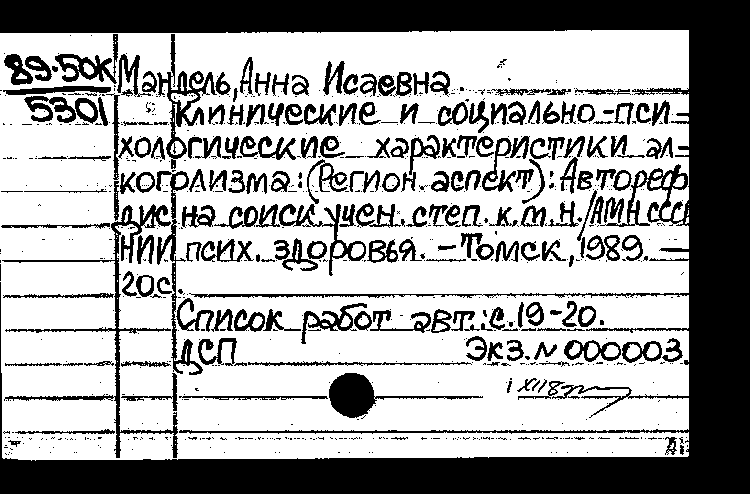 89-50К
5301
Мандель, Анна Исаевна.
Клинические и социально-пси-
хологические характеристики ал-
коголизма: (Регион. аспект): Автореф.
дис. на соиск. учен. степ. к.м.н. / АМН СССР
НИИ псих. здоровья. - Томск, 1989. -
20с.
Список работ авт.: с. 19-20.
ДСП Экз. № 000003.